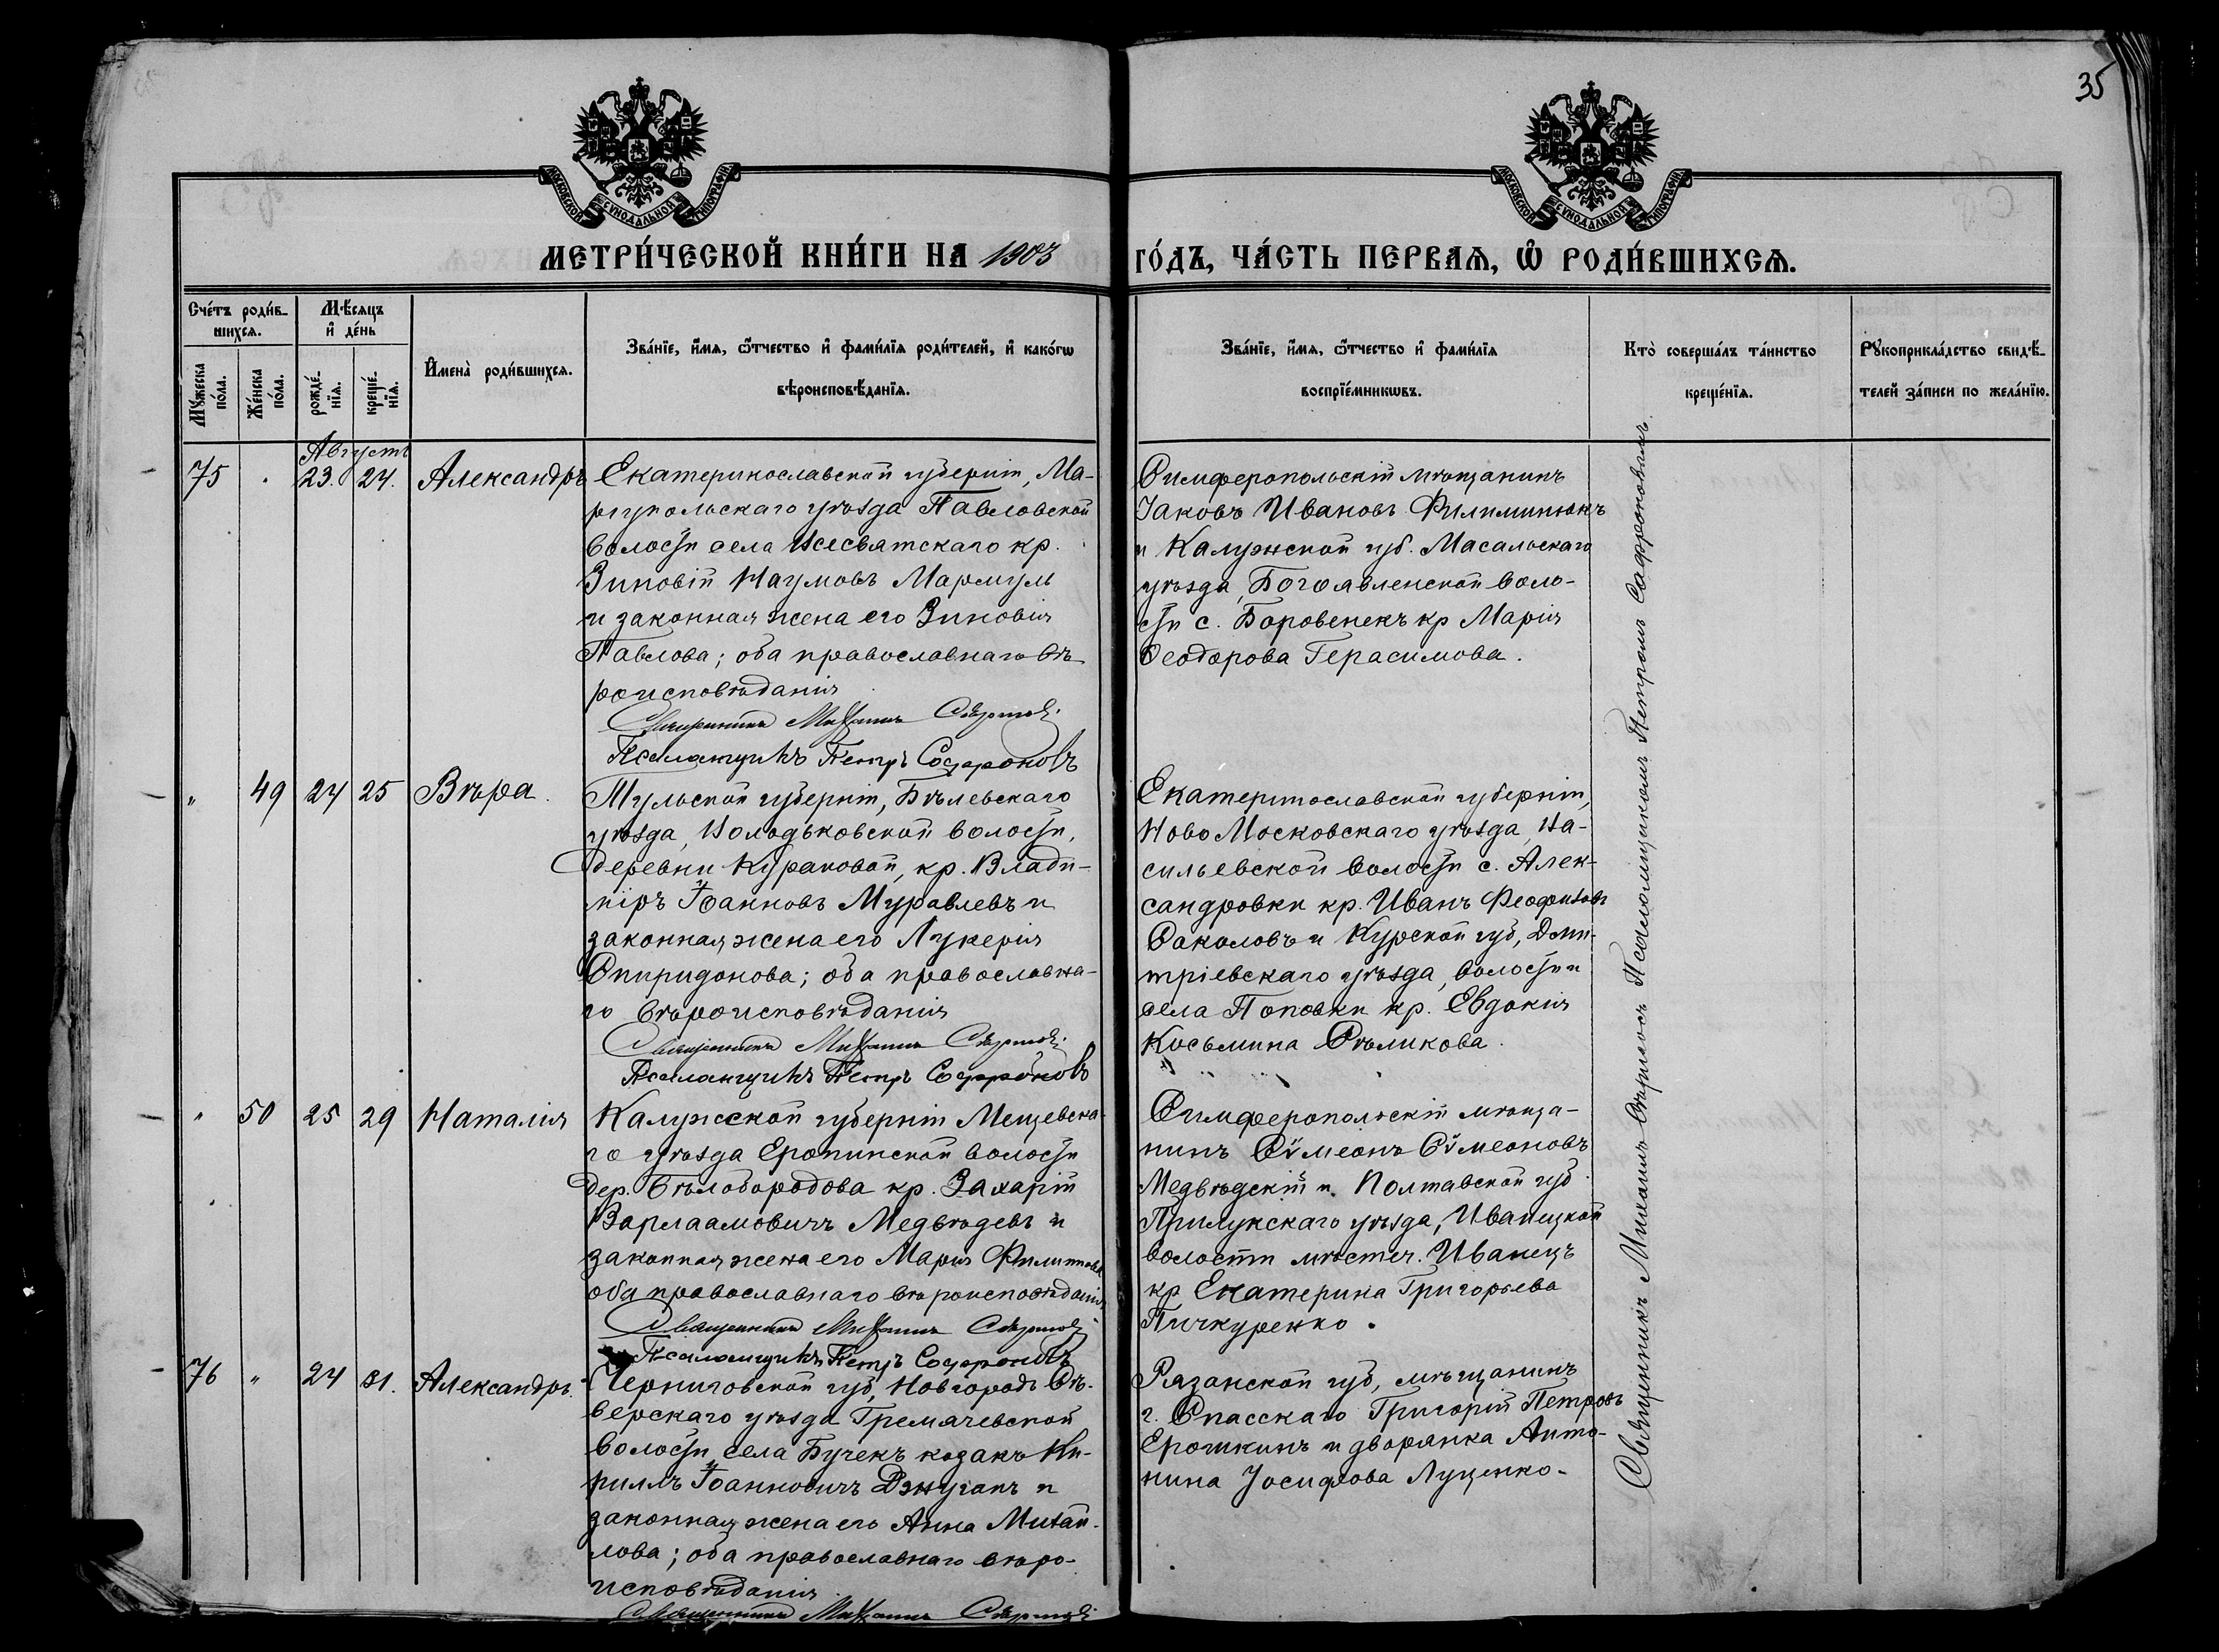 35
МОСКОВСКОЙ СУНОДАЛЬНОЙ ТИПОГРАФІИ
МОСКОВСКОЙ СУНОДАЛЬНОЙ ТИПОГРАФІИ
МЕТРИ́ЧЕСКОЙ КНИ́ГИ НА 1903
ГО́ДЪ, ЧА́СТЬ ПЕРВАѦ, Ѡ҆ РОДИ́ВШИХСѦ.
Сче́тъ роди́в-
шихсѧ.
Мѣ́сѧцъ
и҆ де́нь
Мꙋ́жеска
по́ла.
Же́нска
по́ла.
рожде́-
нїѧ.
креще́-
нїѧ.
И҆мена̀ роди́вшихсѧ.
Зва́нїе, и҆́мѧ, ѻ҆́тчество и҆ фами́лїѧ роди́телей, и҆ како́гѡ
вѣроисповѣ́данїѧ.
Зва́нїе, и҆́мѧ, ѻ҆́тчество и҆ фами́лїѧ
воспрїе́мникѡвъ.
Кто̀ соверша́лъ та́инство
креще́нїѧ.
Рꙋкоприкла́дство свидѣ́-
телей за́писи по жела́нїю.
Августъ
75 . 23. 24. Александръ
Екатеринославской губерніи, Ма-
ріупольскаго уѣзда Павловской
волости села Всесвятскаго кр.
Зиновій Наумовъ Мармуль
и законная жена его Зиновія
Павлова; оба православнаго вѣ-
роисповѣданія
Священникъ Михаилъ
Псаломщикъ Петръ Софроновъ
Симферопольскій мѣщанинъ
Іаковъ Ивановъ Филиминюкъ
и Калужской губ. Масальскаго
уѣзда, Богоявленской воло-
сти с. Боровенекъ кр Марія
Ѳеодорова Герасимова.
„ 49 24 25 Вѣра.
Тульской губерніи, Бѣлевскаго
уѣзда, Володьковской волости,
деревни Кураковой, кр. Влади-
міръ Іоанновъ Муравлевъ и
законная жена его Лукерія
Спиридонова; оба православна-
го вѣроисповѣданія
Священникъ Михаилъ
Псаломщикъ Петръ Софроновъ
Екатеринославской губерніи,
Ново Московскаго уѣзда, Ва-
сильевской волости с. Алек-
сандровки кр. Иванъ
Соколовъ и Курской губ, Дми-
тріевскаго уѣзда, волости и
села Поповки кр. Евдокія
Косьмина Сѣликова.
„ 50 25 29 Наталія
Калужской губерніи Мещевска-
го уѣзда Еропинской волости
дер. Бѣлобородова кр. Захарій
Варлаамовичъ Медвѣдевъ и
законная жена его Марія Филиппова
оба православнаго вѣроисповѣданія
Священникъ Михаилъ
Псаломщикъ Петръ Софроновъ
Симферопольскій мѣща-
нинъ Сѵмеонъ Сѵмеоновъ
Медвѣдскій и Полтавской губ.
Прилукскаго уѣзда, Иваницкой
волости мѣстеч. Иваницъ
кр Екатерина Григорьева
Пичкуренко.
76 „ 24 31. Александръ.
Черниговской губ, Новгородъ Сѣ-
верскаго уѣзда Гремячевской
волости села Бучекъ козакъ Ки-
риллъ Іоанновичъ Джуганъ и
законная жена его Анна Михай-
лова; оба православнаго вѣро-
исповѣданія
Священникъ Михаилъ
Рязанской губ, мѣщанинъ
г. Спасскаго Григорій Петровъ
Ерошкинъ и дворянка Анто-
нина Іосифова Луценко.
Священникъ Михаилъ Псаломщикомъ Петромъ Сафроновымъ